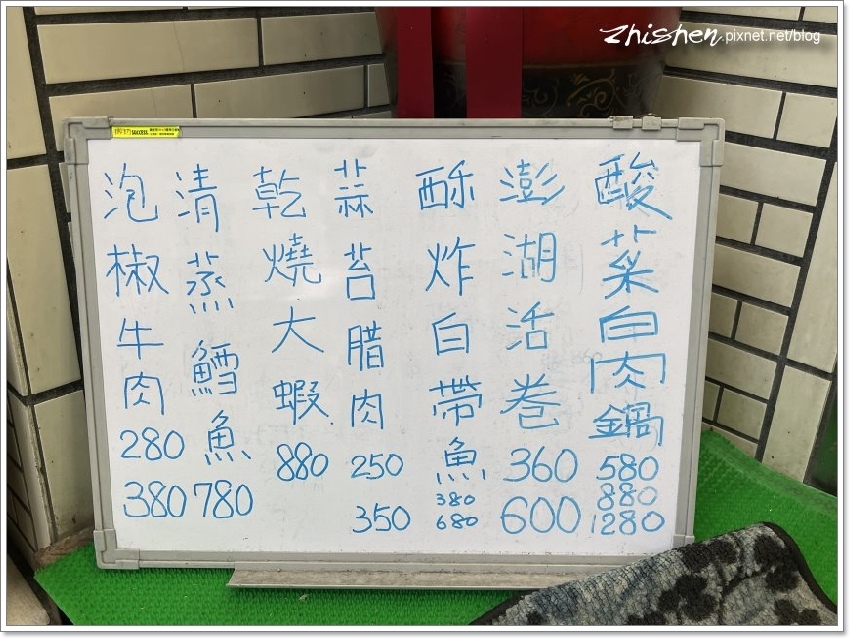 zhishen.pixnet.net/blog
SUCCESS
酸菜白肉鍋
580
880
1280
澎湖活卷
360
600
酥炸白帶魚
380
680
蒜苔腊肉
250
350
乾燒大蝦
880
清蒸鱈魚
780
泡椒牛肉
280
380